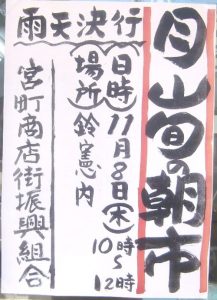 月山旬の朝市
雨天決行
日時 11月8日(木)
10時〜12時
場所 鈴憲内
宮町商店街振興組合